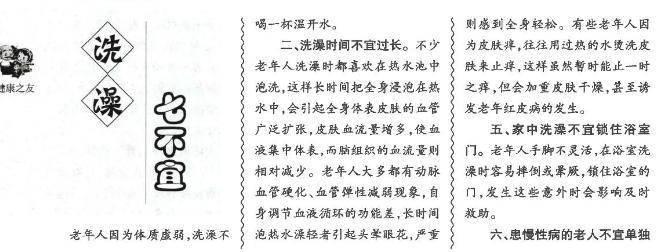 洗
澡
七不宜
健康之友
老年人因为体质虚弱，洗澡不
喝一杯温开水。
二、洗澡时间不宜过长。不少
老年人洗澡时都喜欢在热水池中
泡洗，这样长时间把全身浸泡在热
水中，会引起全身体表皮肤的血管
广泛扩张，皮肤血流量增多，使血
液集中体表，而脑组织的血流量则
相对减少。老年人大多都有动脉
血管硬化、血管弹性减弱现象，自
身调节血液循环的功能差，长时间
泡热水澡轻者引起头晕眼花，严重
则感到全身轻松。有些老年人因
为皮肤痒，往往用过热的水烫洗皮
肤来止痒，这样虽然暂时能止一时
之痒，但会加重皮肤干燥，甚至诱
发老年红皮病的发生。
五、家中洗澡不宜锁住浴室
门。老年人手脚不灵活，在浴室洗
澡时容易摔倒或晕厥，锁住浴室的
门，发生这些意外时会影响及时
救助。
六、患慢性病的老人不宜单独